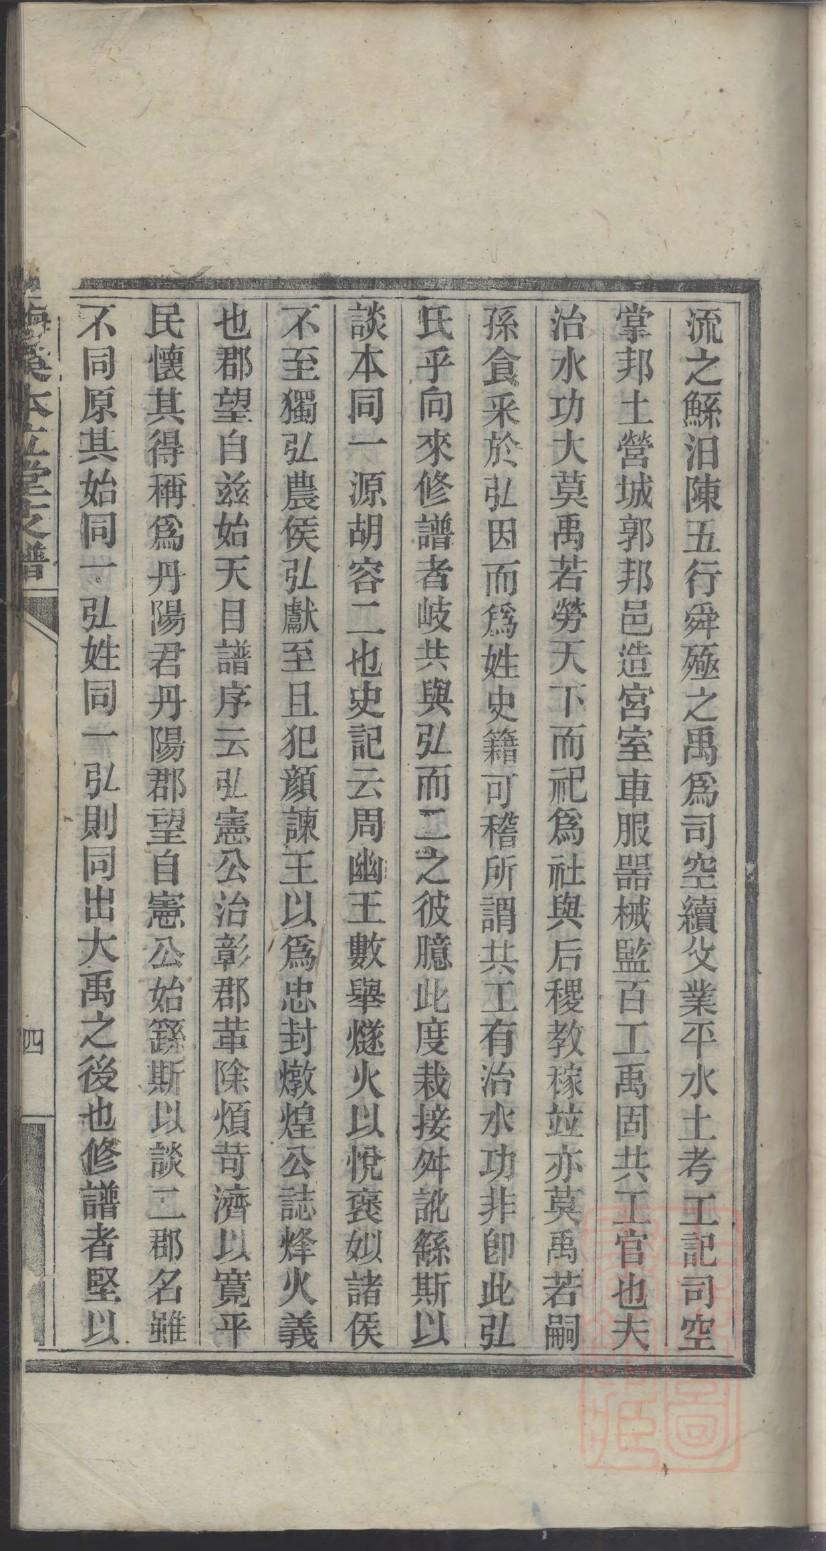 流之鯀汨陳五行舜殛之禹爲司空續父業平水土考工記司空
掌邦土營城郭邦邑造宮室車服器械監百工禹固共工官也夫
治水功大莫禹若勞天下而祀爲社與后稷教稼竝亦莫禹若嗣
孫食采於弘因而爲姓史籍可稽所謂共工有治水功非卽此弘
氏乎向來修譜者岐共與弘而二之彼臆此度栽接舛訛繇斯以
談本同一源胡容二也史記云周幽王數舉燧火以悅褒姒諸侯
不至獨弘農侯弘獻至且犯顏諫王以爲忠封燉煌公誌烽火義
也郡望自茲始天目譜序云弘憲公治彰郡革除煩苛濟以寛平
民懷其得稱爲丹陽君丹陽郡望自憲公始繇斯以談二郡名雖
不同原其始同一弘姓同一弘則同出大禹之後也修譜者堅以
本立堂支譜
四